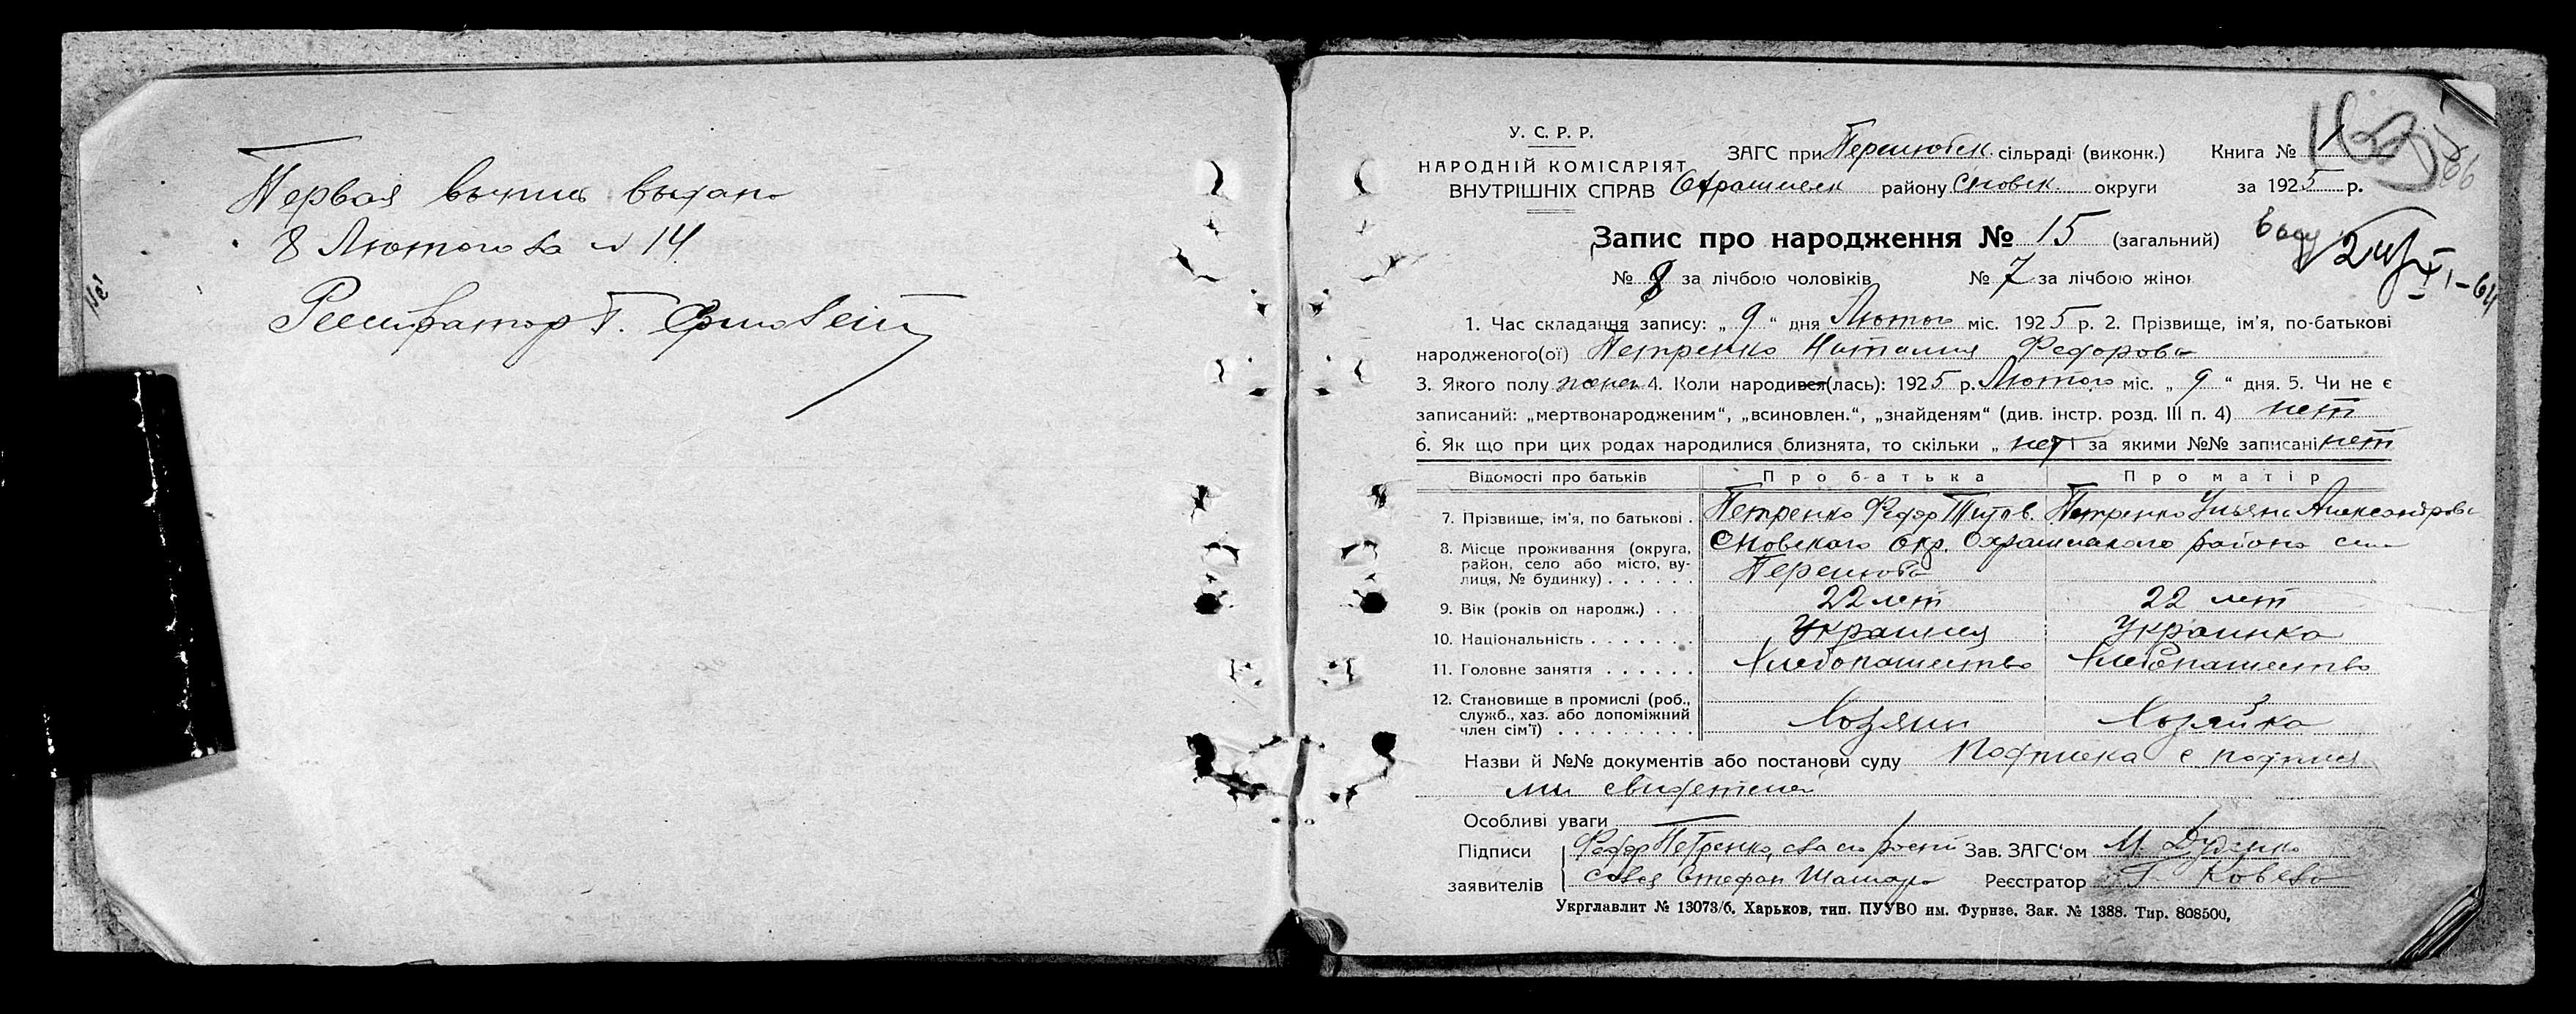 Первая выпись выдана
8 Лютого за № 14
Реєстратор Г.
У. С. Р. Р.
НАРОДНІЙ КОМІСАРІЯТ
ВНУТРІШНІХ СПРАВ
ЗАГС при Перелюбск. сільраді (виконк.) Книга № 1
району Сновск округи за 1925 р.
Запис про народження № 15 (загальний)
№ 8 за лічбою чоловіків № 7 за лічбою жінок
1. Час складання запису: „ 9 “ дня Лютого міс. 1925 р. 2. Прізвище, ім'я, по-батькові
народженого(ої) Петренко Наталия Федорова
3. Якого полу женск 4. Коли народився(лась): 1925 р. Лютого міс. „ 9 “ дня. 5. Чи не є
записаний: „мертвонародженим“, „всиновлен.“, „знайденям“ (див. інстр. розд. III п. 4) нет
6. Як що при цих родах народилися близнята, то скільки „ нет за якими №№ записані нет
Відомості про батьків Про батька Про матір
7. Прізвище, ім'я, по батькові . Петренко Федор Титов. Петренко Ульяна Александрова
8. Місце проживання (округа, Сновского окр. района село
район, село або місто, ву-
лиця, № будинку) . . . . . .
9. Вік (років од народж.) . . 22 лет 22 лет
10. Національність . . . . . . . Украинец Украинка
11. Головне заняття . . . . . . Хлебопашество Хлебопашество
12. Становище в промислі (роб.,
служб., хаз. або допоміжний
член сім'ї) . . . . . . . . . Хозяин Хозяйка
Назви й №№ документів або постанови суду Подписка с подпися
ми свидетелей
Особливі уваги
Підписи Федор Петренко, Зав. ЗАГС'ом М.
заявителів Стефан Реєстратор Г.
Укрглавлит № 13073/6. Харьков, тип. ПУУВО им. Фрунзе. Зак. № 1388. Тир. 808500.